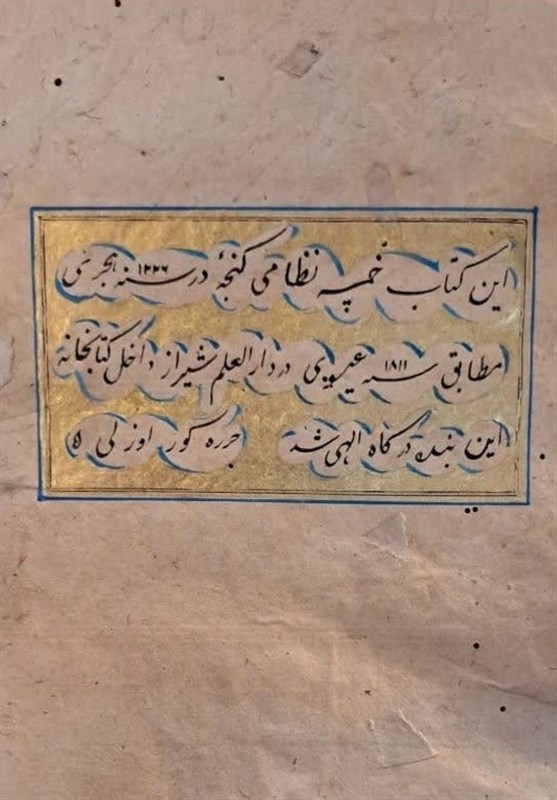 این کتاب خمسه نظامی گنجۀ در سنه ۱۲۲۶ هجری
مطابق سنه ۱۸۱۱ عیسوی در دار العلم شیراز داخل کتابخانه
این بنده درگاه الهی شد حرره گور اوزلی